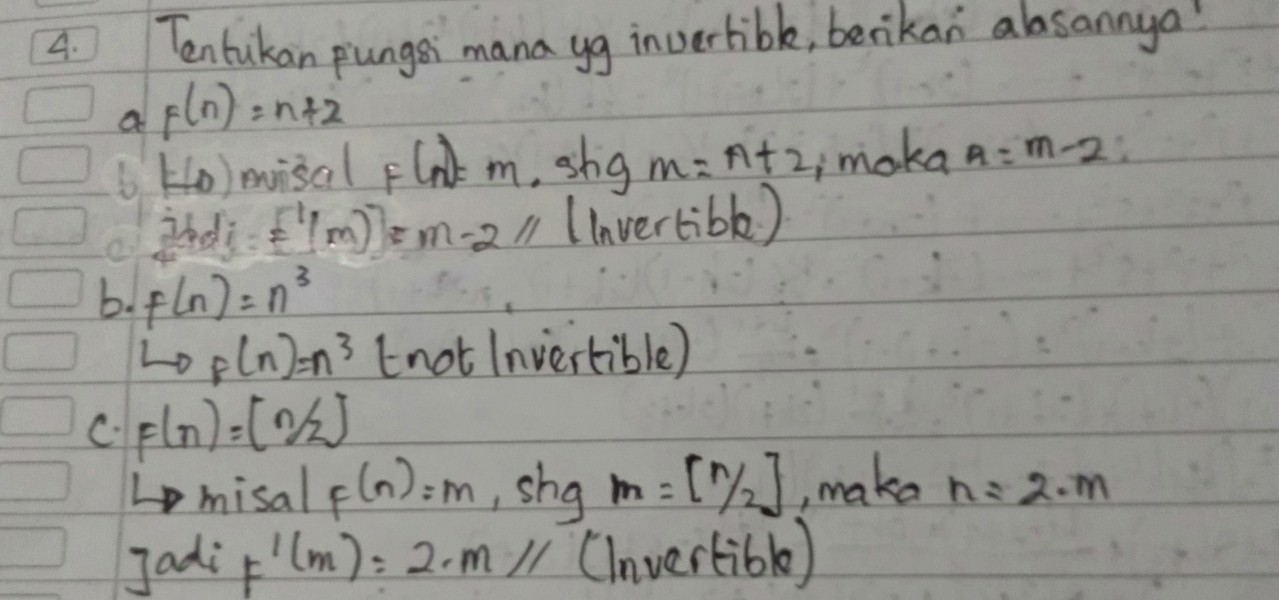 4. Tentukan fungsi mana yg invertible, berikan alasannya!
a f(n) = n+2
misal f(n) = m, shg m = n+2, maka n = m-2.
jadi f'(m) = m-2 // (Invertible)
b. f(n) = n³
↳ f(n)=n³ (not Invertible)
c. f(n) = [n/2]
↳ misal f(n) = m, shg m = [n/2], maka n = 2.m
Jadi f'(m) = 2.m // (Invertible)